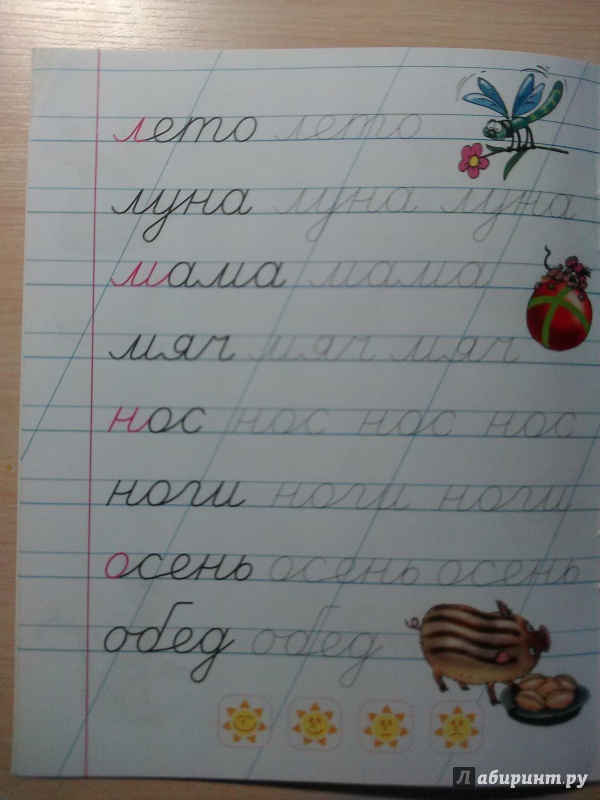 лето лето
луна луна луна
мама мама
мяч мяч мяч
нос нос нос нос
ноги ноги ноги
осень осень осень
обед обед
Лабиринт.ру